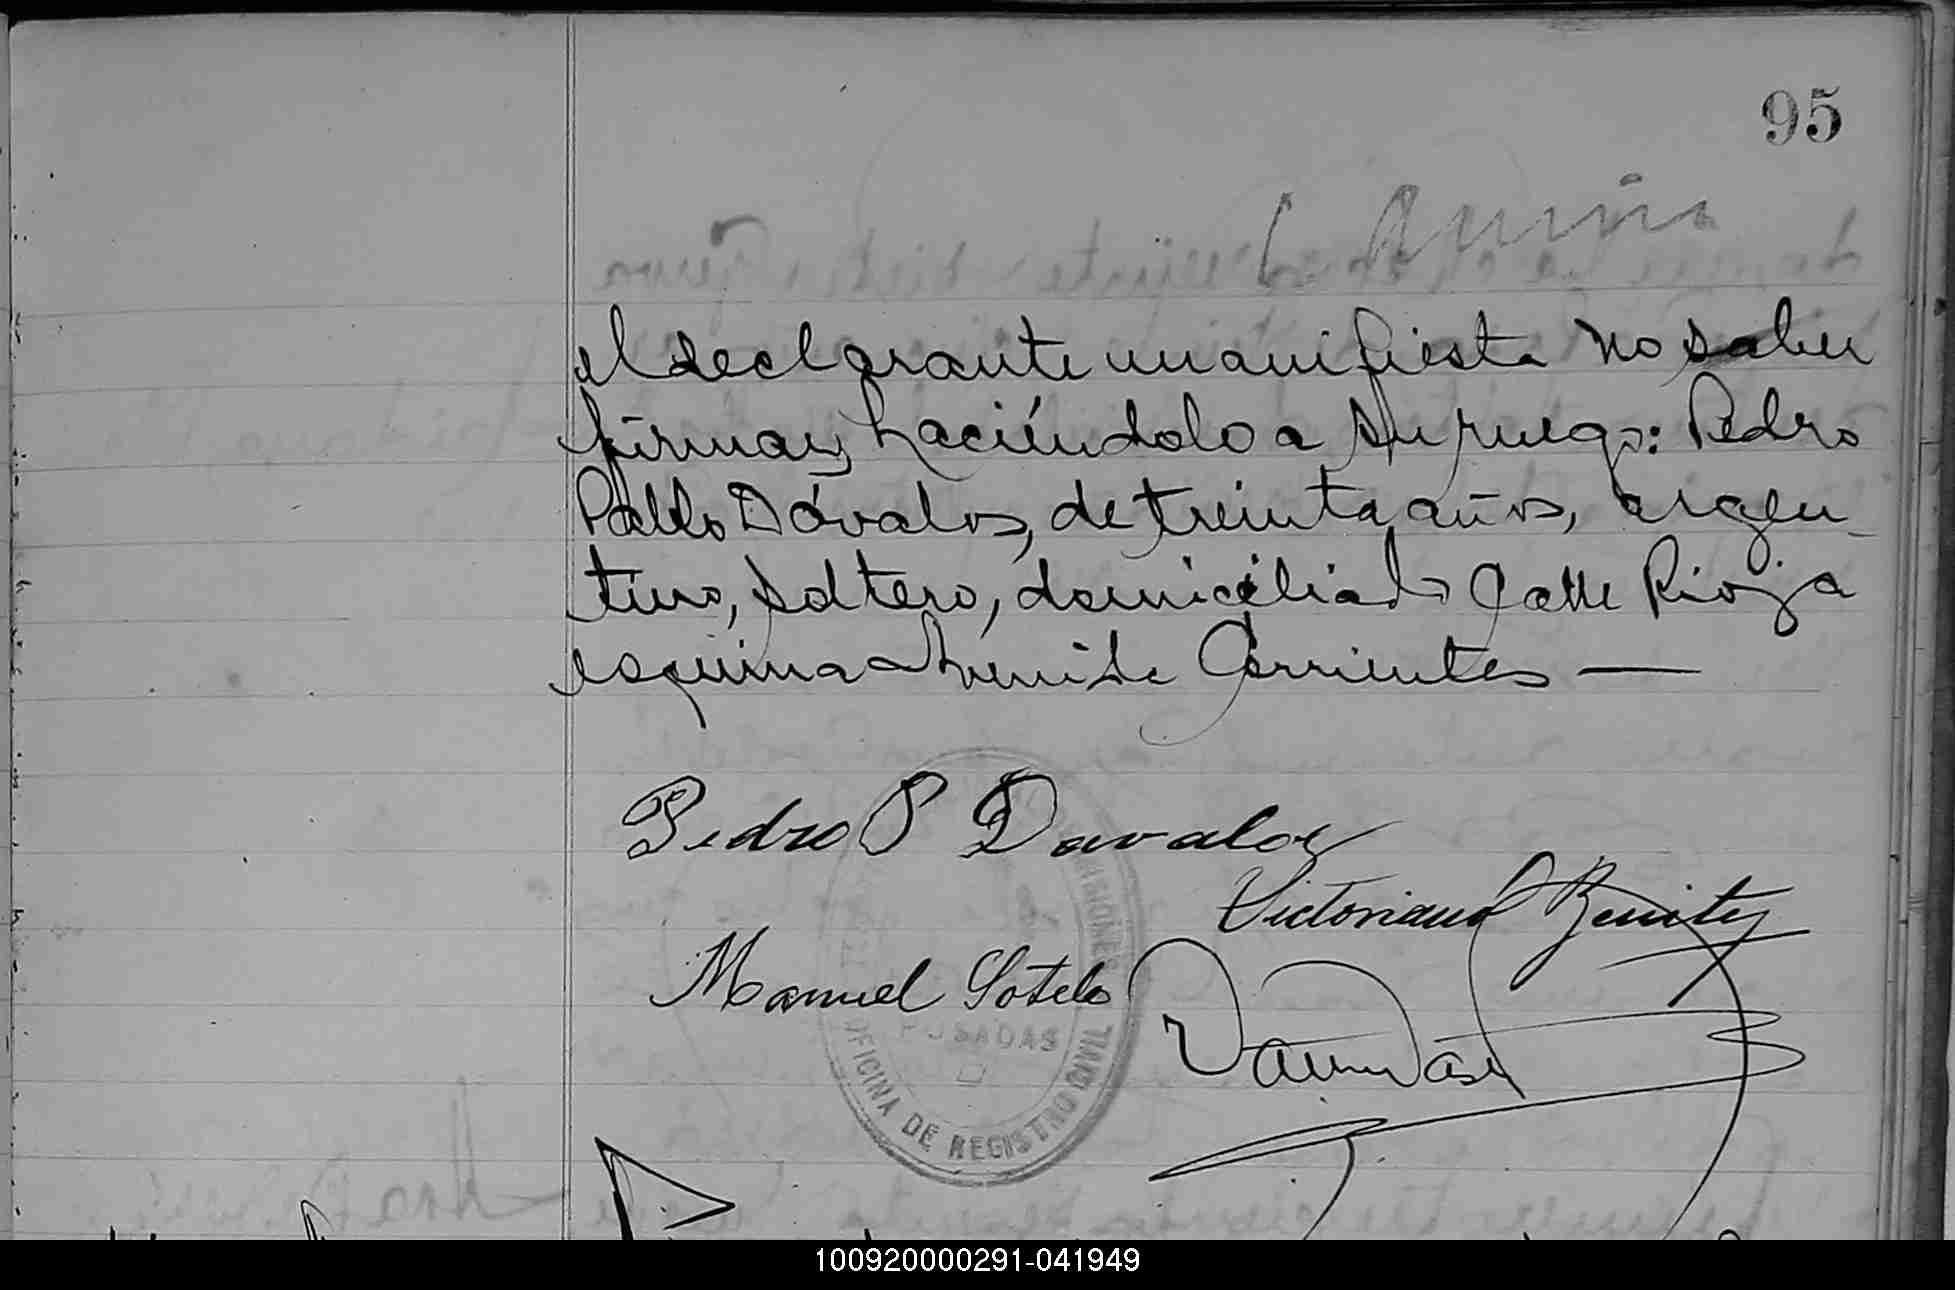 95
el declarante manifiesta no saber
firmar, haciéndolo a su ruego: Pedro
Pablo Dávalos, de treinta años, argen_
tino, soltero, domiciliado Calle Rioja
esquina Avenida Corrientes —
Pedro P Davalos
Victoriano Benitez
Manuel Sotelo
POSADAS
OFICINA DE REGISTRO CIVIL
MISIONES
100920000291-041949